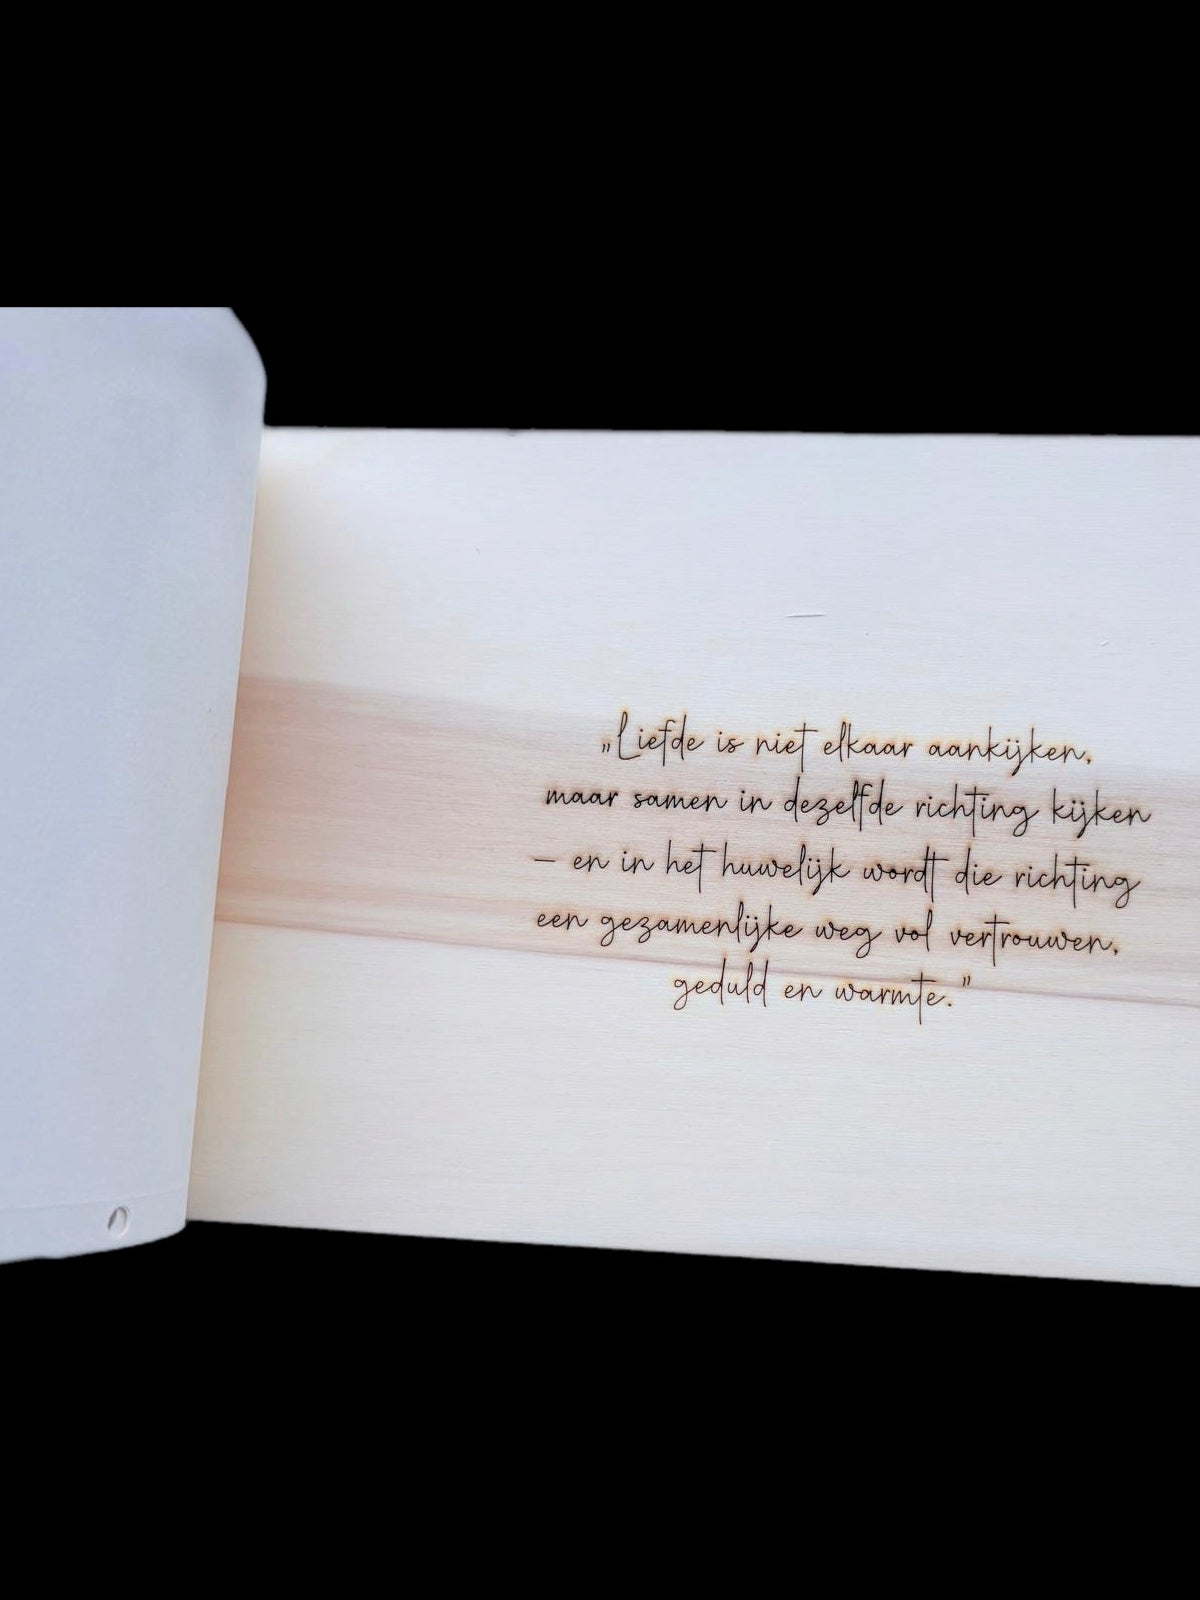 „Liefde is niet elkaar aankijken,
maar samen in dezelfde richting kijken
– en in het huwelijk wordt die richting
een gezamenlijke weg vol vertrouwen,
geduld en warmte.”